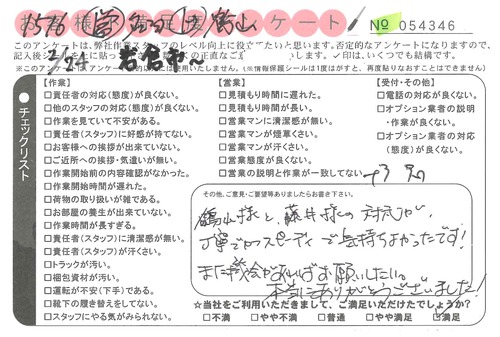 アンケート No 054346
このアンケートは、弊社作業スタッフのレベル向上に役立てたいと思います。否定的なアンケートになりますので、
□印は、いくつでも結構です。
2/24
チェックリスト
【作業】
□責任者の対応(態度)が良くない。
□他のスタッフの対応(態度)が良くない。
□作業を見ていて不安がある。
□責任者(スタッフ)に好感が持てない。
□お客様への挨拶が出来ていない。
□ご近所への挨拶・気遣いが無い。
□作業開始前の内容確認がなかった。
□作業開始時間が遅れた。
□荷物の取り扱いが雑である。
□お部屋の養生が出来ていない。
□作業時間が長すぎる。
□責任者(スタッフ)に清潔感が無い。
□責任者(スタッフ)が汗くさい。
□トラックが汚い。
□梱包資材が汚い。
□運転が不安(下手)である。
□靴下の履き替えをしてない。
□スタッフにやる気がみられない。
【営業】
□見積もり時間に遅れた。
□見積もり時間が長い。
□営業マンに清潔感が無い。
□営業マンが煙草くさい。
□営業マンが汗くさい。
□営業態度が良くない。
□営業の説明と作業が一致してない。
【受付・その他】
□電話の対応が良くない。
□オプション業者の説明
・作業が良くない。
□オプション業者の対応
(態度)が良くない。
その他、ご意見・ご要望等ありましたらお書き下さい。
鶴山様と藤井様の対応が、
丁寧でかつスピーディで気持ちよかったです!
また機会があればお願いしたい。
本当にありがとうございました!
☆当社をご利用いただきまして、ご満足いただけたでしょうか?
□不満 □やや不満 □普通 □やや満足 ☑満足